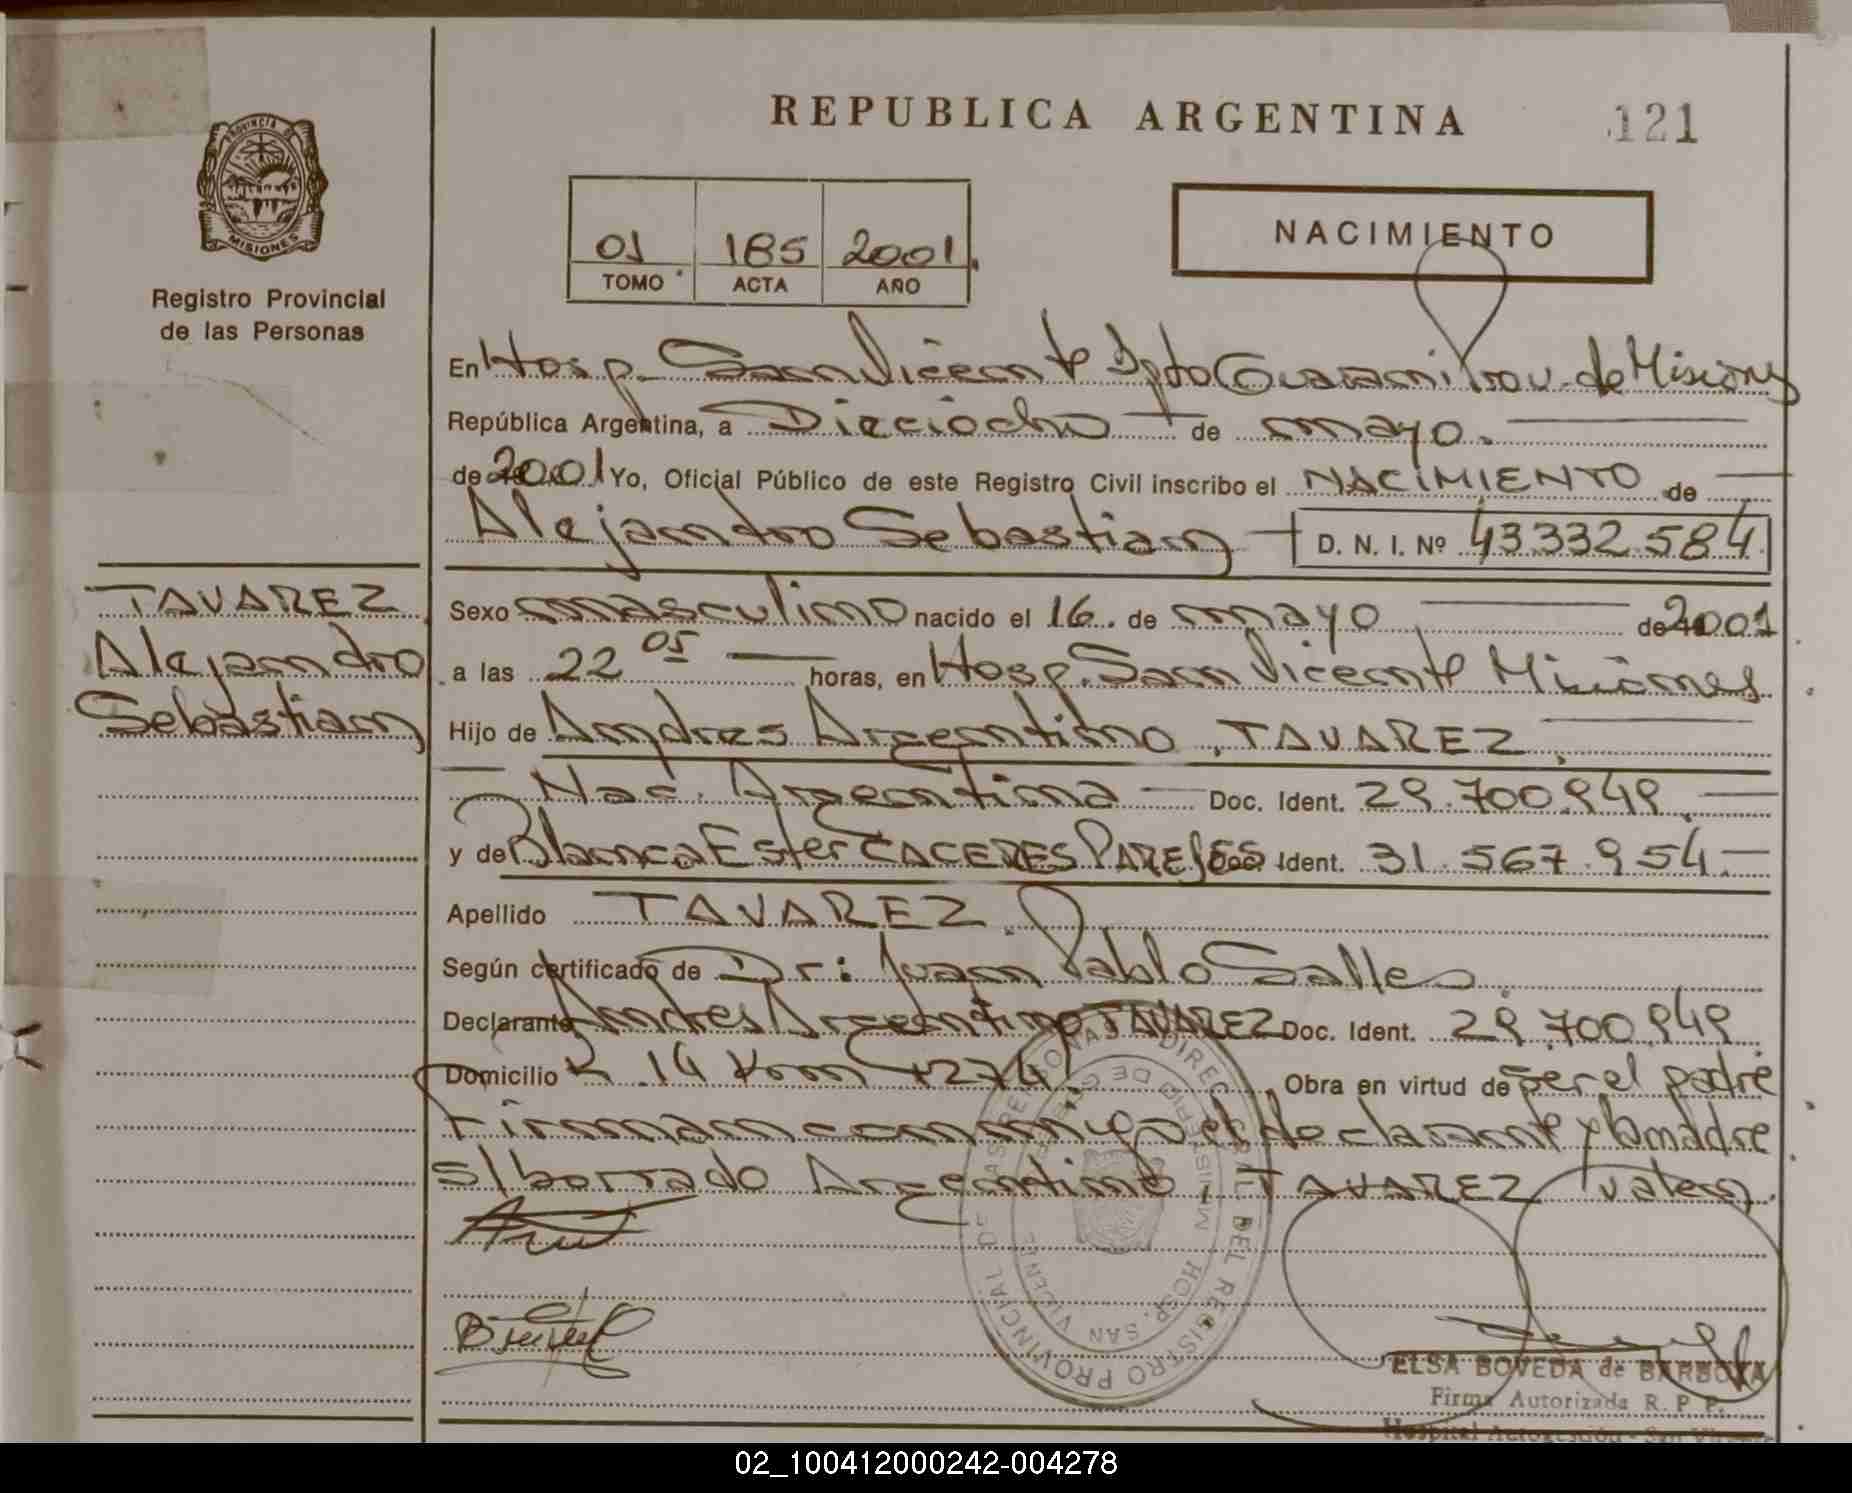 REPUBLICA ARGENTINA
121
PROVINCIA DE
MISIONES
Registro Provincial
de las Personas
01 185 2001
TOMO ACTA AÑO
NACIMIENTO
En Hosp. San Vicente Dpto Guarani Prov. de Misiones
República Argentina, a Dieciocho de mayo.
de 2001 Yo, Oficial Público de este Registro Civil inscribo el NACIMIENTO de
Alejandro Sebastian D. N. I. Nº 43332584
TAVAREZ
Alejandro
Sebastian
Sexo masculino nacido el 16 de mayo de 2001
a las 22 05 horas, en Hosp. San Vicente Misiones
Hijo de Andres Argentino TAVAREZ
Nac. Argentina Doc. Ident. 29.700.949
y de Blanca Ester CACERES PAREJES Doc. Ident. 31.567.954
Apellido TAVAREZ
Según certificado de Dr: Juan Pablo Salles
Declarante Andres Argentino TAVAREZ Doc. Ident. 29.700.949
Domicilio 14 Km 1274 Obra en virtud de ser el padre
Firman conmigo el declarante y la madre
s/borrado Argentino, TAVAREZ valen.
REGISTRO PROVINCIAL DE LAS PERSONAS
HOSP. SAN VICENTE
ELSA BOVEDA de BARBOZA
Firma Autorizada R. P. P.
Hospital Autogestión - San Vicente
02_100412000242-004278